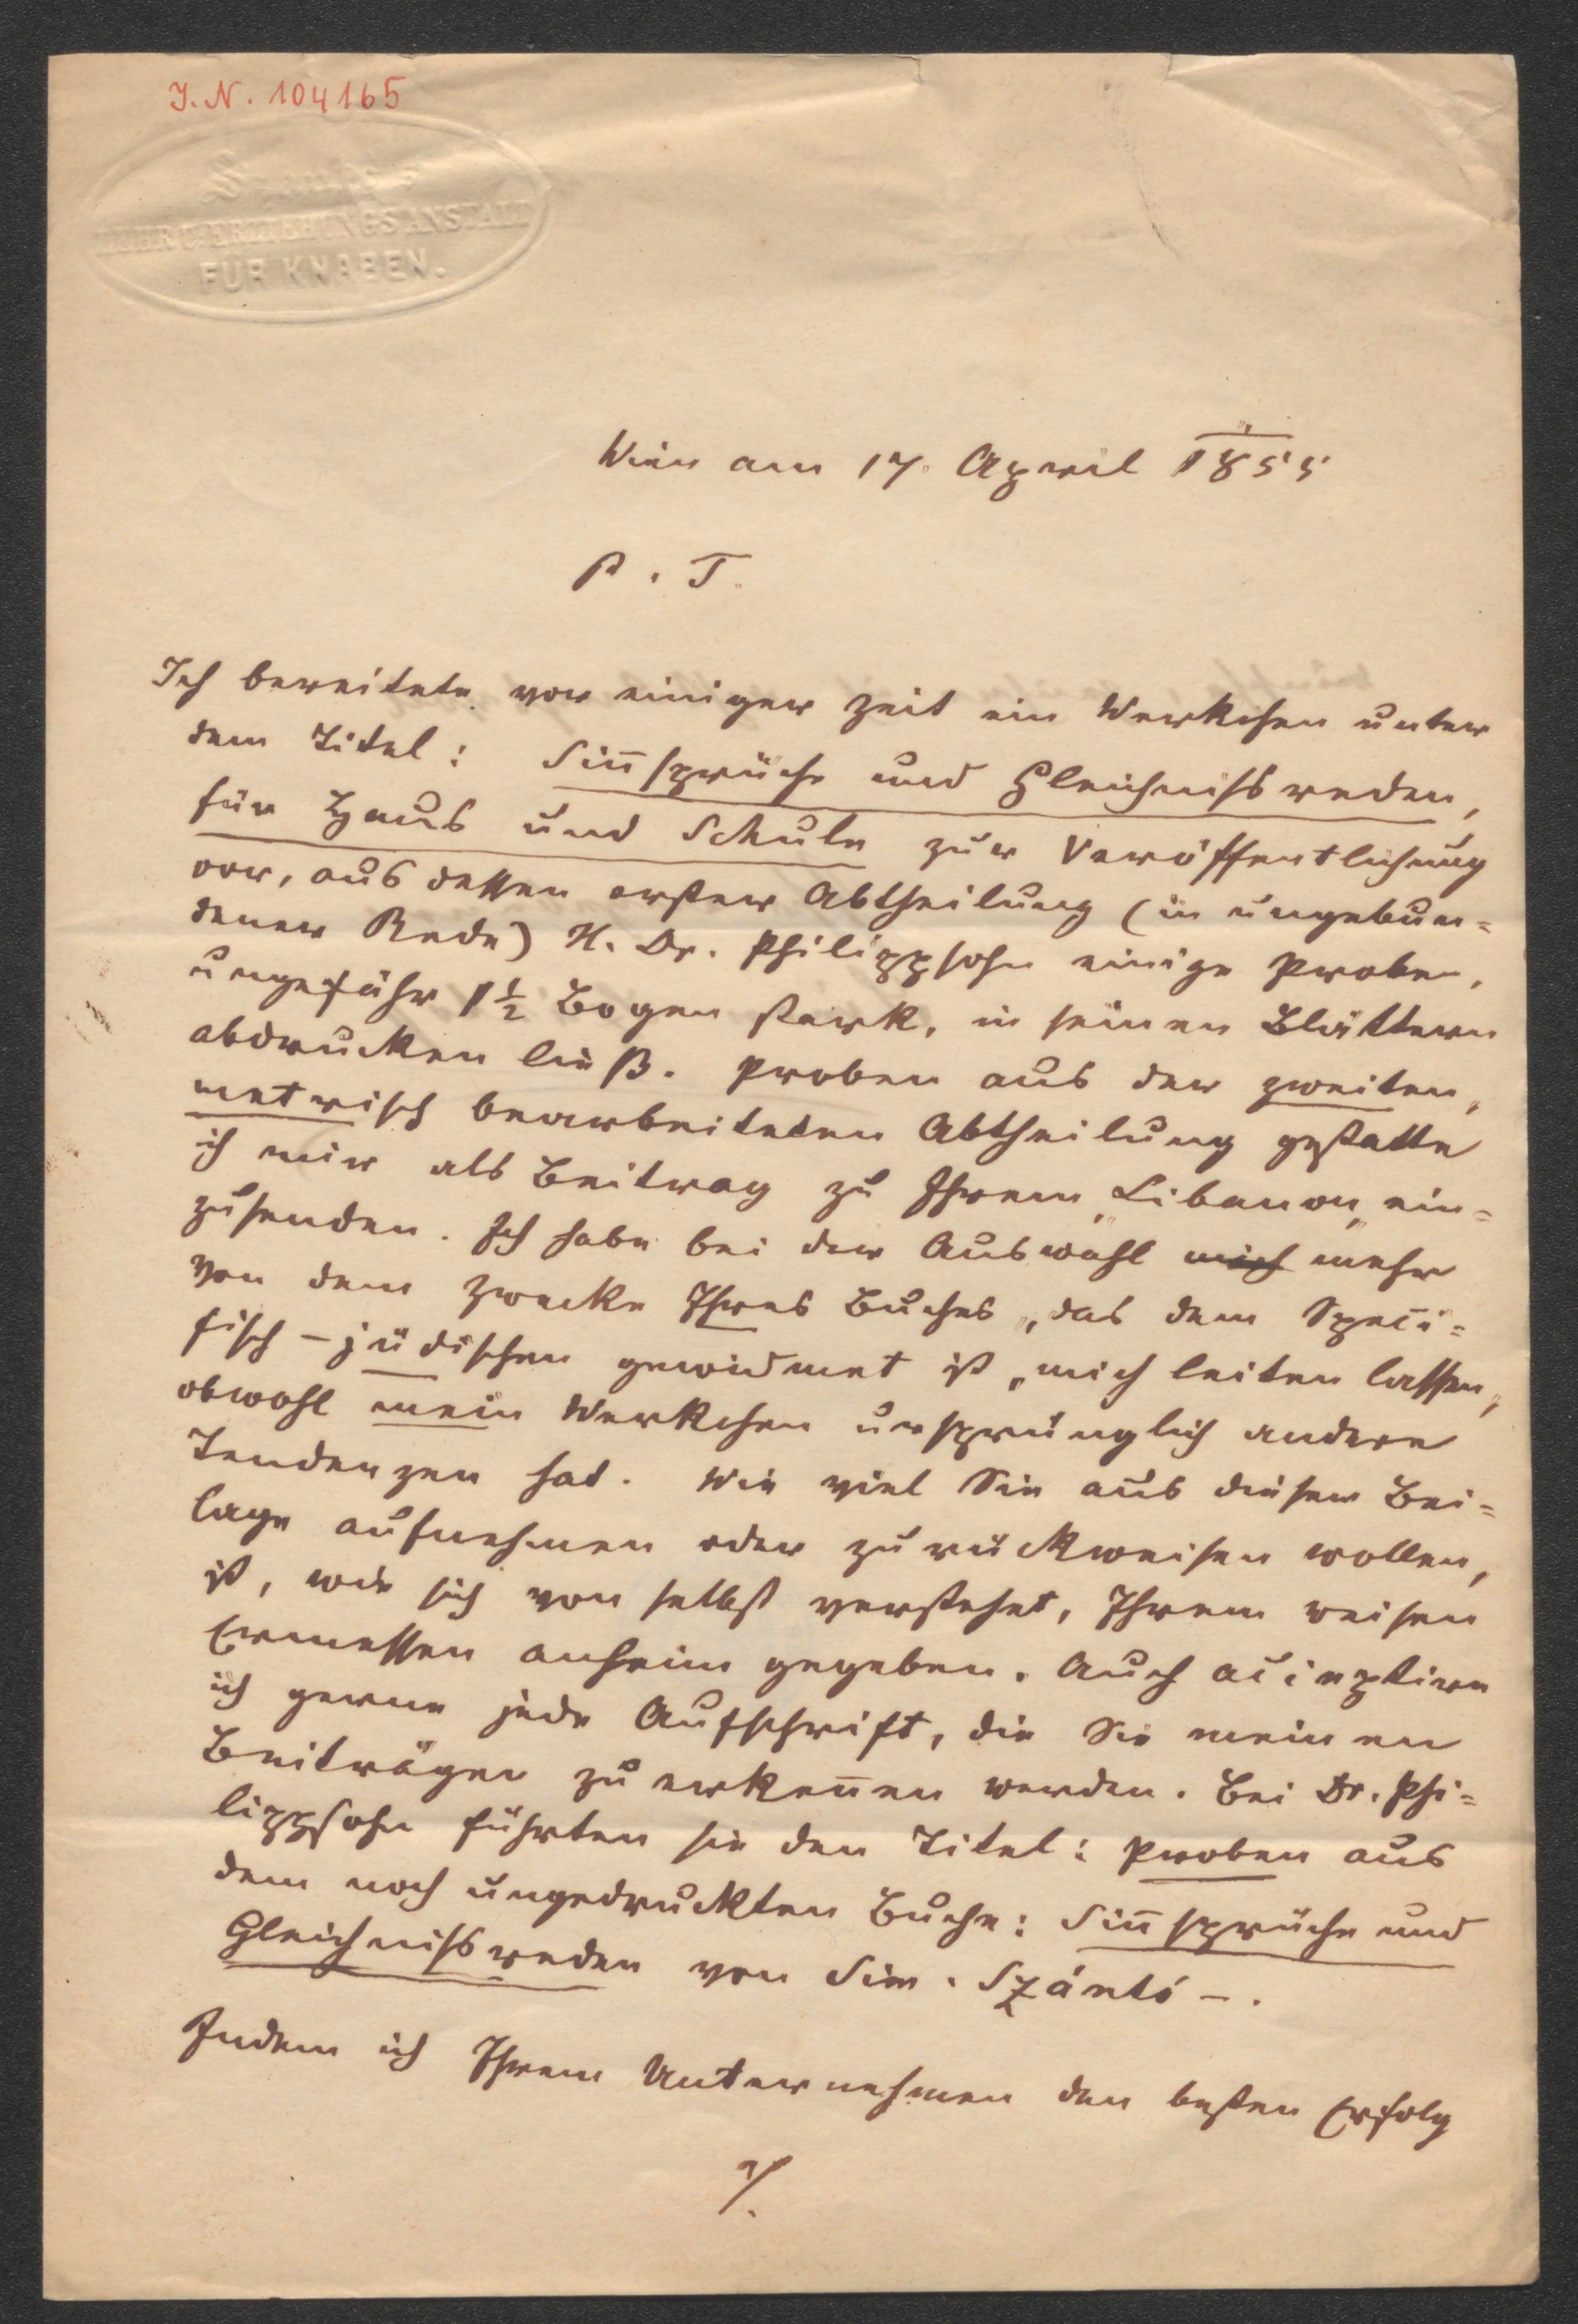 J. N. 104165
LEHR U. ERZIEHUNGSANSTALT
FÜR KNABEN.
Wien am 17. April 1855
P. T.
Ich bereitete vor einiger Zeit ein Werkchen unter
dem Titel: Sin̅sprüche und Gleichnißreden,
für Haus und Schule zur Veröffentlichung
vor, aus dessen erster Abtheilung (in ungebun=
dener Rede) H. Dr. Philippsohn einige Proben,
ungefähr 1½ Bogen stark, in seinen Blättern
abdrucken ließ. Proben aus der zweiten,
metrisch bearbeiteten Abtheilung gestatte
ich mir als Beitrag zu Ihrem „Libanon„ ein=
zusenden. Ich habe bei der Auswahl mich mehr
von dem Zwecke Ihres Buches, das dem Speci=
fisch-jüdischen gewidmet ist, mich leiten lassen,
obwohl mein Werkchen ursprünglich andere
Tendenzen hat. Wie viel Sie aus dieser Bei=
lage aufnehmen oder zurückweisen wollen,
ist, wie sich von selbst verstehet, Ihrem weisen
Ermessen anheim gegeben. Auch acceptire
ich gerne jede Aufschrift, die Sie meinen
Beiträgen zu erken̅en werden. Bei Dr. Phi=
lippsohn führten sie den Titel: Proben aus
dem noch ungedruckten Buche: Sin̅sprüche und
Gleichnißreden von Sim. Szántó –.
Indem ich Ihrem Unternehmen den besten Erfolg